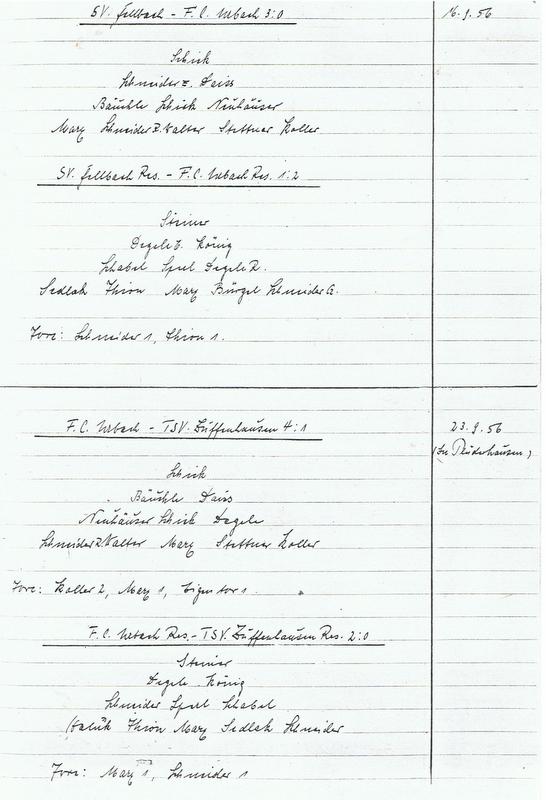 SV. Fellbach - F.C. Urbach 3:0 16.9.56
Schick
Schneider E. Daiss
Bäuchle Schick Neuhäuser
Marx Schneider R. Walter Stettner Koller
SV. Fellbach Res. - F.C. Urbach Res. 1:2
Steiner
Degele E. König
Schabel Speel Degele R.
Sedlak Thion Marx Bürgel Schneider G.
Tore: Schneider 1, Thion 1.
F.C. Urbach - TSV. Zuffenhausen 4:1 23.9.56
(In Plüderhausen)
Schick
Bäuchle Daiss
Neuhäuser Schick Degele
Schneider R. Walter Marx Stettner Koller
Tore: Koller 2, Marx 1, Eigentor 1.
F.C. Urbach Res. - TSV. Zuffenhausen Res. 2:0
Steiner
Degele König
Schneider Speel Schabel
Thion Marx Sedlak Schneider
Tore: Marx 1, Schneider 1